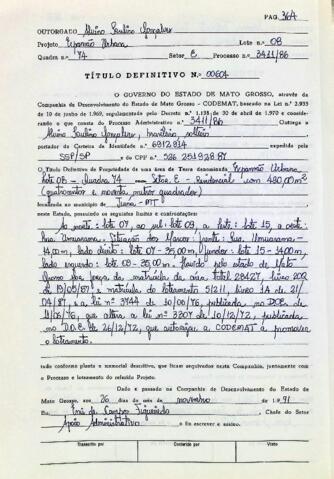 PAG. 36A
OUTORGADO Aluino Paulino Gonçalves
Projeto Expansão Urbana Lote n.º 08
Quadra n.º 74 Setor E Processo n.º 3411/86
TÍTULO DEFINITIVO N.º 00604
O GOVERNO DO ESTADO DE MATO GROSSO, através da
Companhia de Desenvolvimento do Estado de Mato Grosso - CODEMAT, baseado na Lei n.º 2.933
de 10 de junho de 1969, regulamentada pelo Decreto n.º 1.138 de 30 de abril de 1970 e considerando
o que consta do Processo Administrativo n.º 3411/86 Outorga a
Aluino Paulino Gonçalves, brasileiro, solteiro
portador da Carteira de Identidade n.º 6912814 expedida pela
SSP/SP e do CPF n.º
O Título Definitivo de Propriedade de uma área de Terra denominada Expansão Urbana
Lote 08 - Quadra 74 - Setor E - Residencial com 490,00m²
(quatrocentos e noventa metros quadrados)
localizado no município de Juína - MT
neste Estado, possuindo os seguintes limites e confrontações:
ao norte: lote 07, ao sul: lote 09, a leste: lote 15, a oeste:
Rua Umuarama. Situação dos Marcos: frente: Rua Umuarama -
14,00m, lado direito: lote 07 - 35,00m, fundos: lote 15 - 14,00m,
lado esquerdo: lote 09 - 35,00m. Havido pelo Estado de Mato
Grosso por força da matrícula da área total 28427, livro 2
de 19/05/87 e matrícula do loteamento 5/211, livro 1A de 21/
04/87, e a lei nº 3744 de 10/06/76, publicada no D.O.E. de
11/06/76, que altera a lei nº 3307 de 10/12/72, publicada
no D.O.E. de 26/12/72, que autoriza a CODEMAT a promover
o loteamento.
tudo conforme planta e memorial descritivo, que ficam arquivados nesta Companhia, juntamente com
o Processo e loteamento do referido Projeto.
Dado e passado na Companhia de Desenvolvimento do Estado de
Mato Grosso, aos 26 dias do mês de novembro de 1991
Eu, de Campos Figueiredo Chefe do Setor
Apoio Administrativo o fiz escrever e assino.
Transcrito por Conferido por Visto